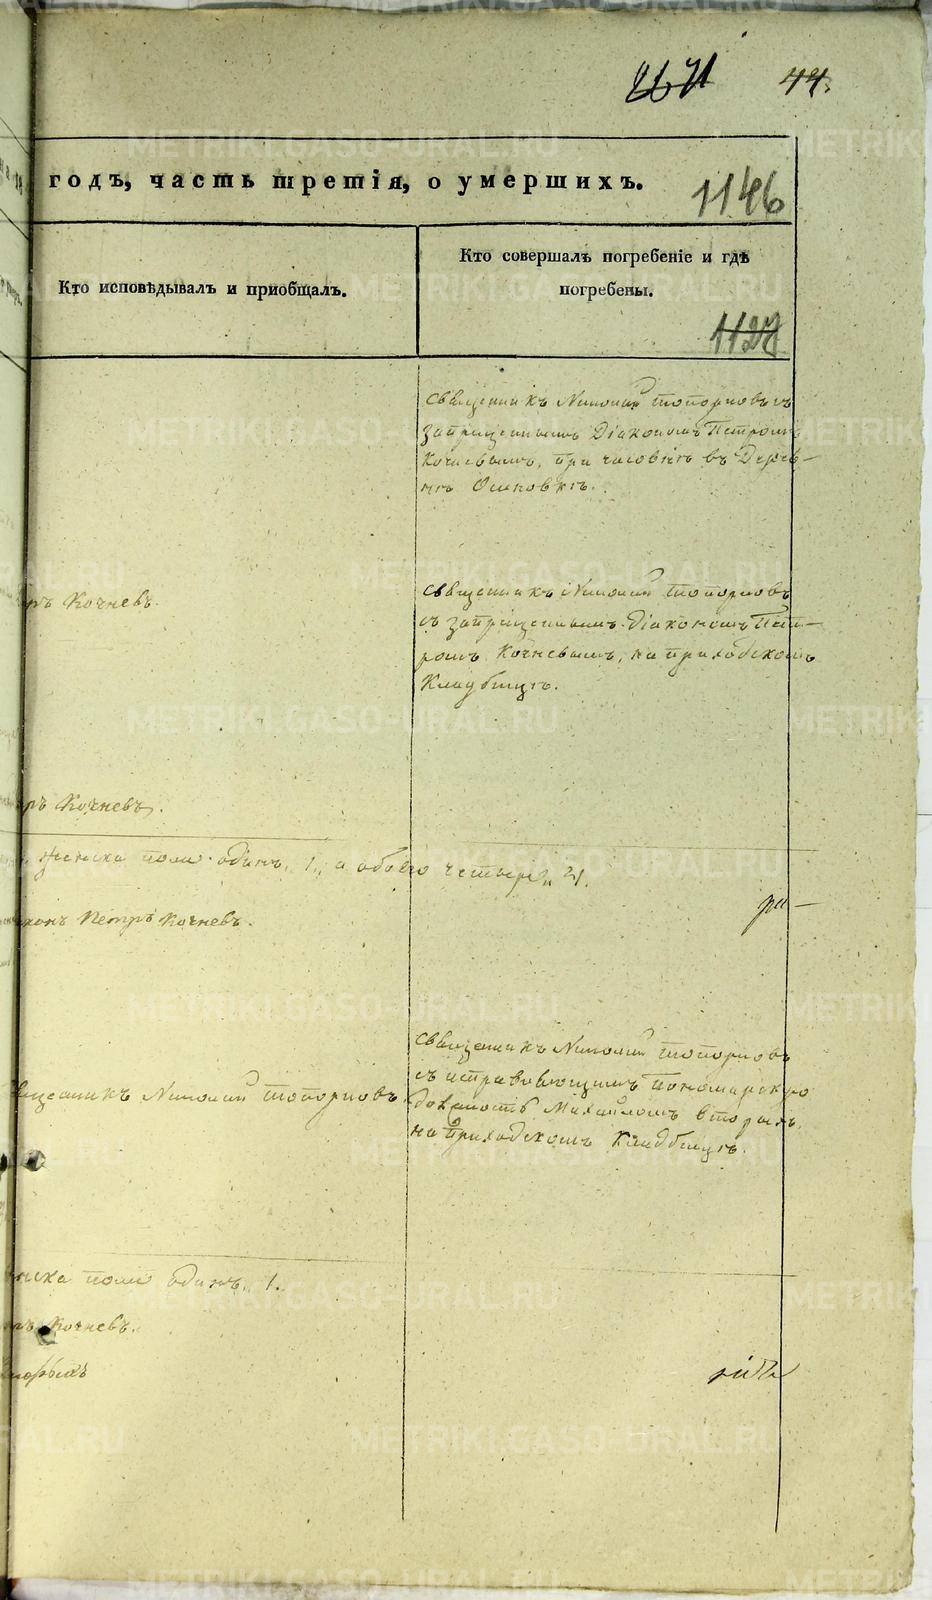 44.
годъ, часть третія, о умершихъ.
1146
Кто исповѣдывалъ и приобщалъ.
Кто совершалъ погребеніе и гдѣ
погребены.
1127
Священникъ Николай Топорковъ съ
запрещеннымъ Діакономъ Петромъ
Кочневымъ, при часовнѣ въ Дерев-
нѣ Осиновкѣ.
Кочневъ.
Священникъ Николай Топорковъ
съ запрещеннымъ Діакономъ Пет-
ромъ Кочневымъ, на приходскомъ
Кладбищѣ.
ръ Кочневъ.
женска пола одинъ, 1, а обоего четыре 4.
конъ Петръ Кочневъ.
Священникъ Николай Топорковъ
съ исправляющимъ пономарскую
должность Михайломъ Вторыхъ,
на приходскомъ Кладбищѣ.
вященникъ Николай Топорковъ.
нска пола одинъ, 1.
ръ Кочневъ.
Вторыхъ
METRIKI.GASO-URAL.RU